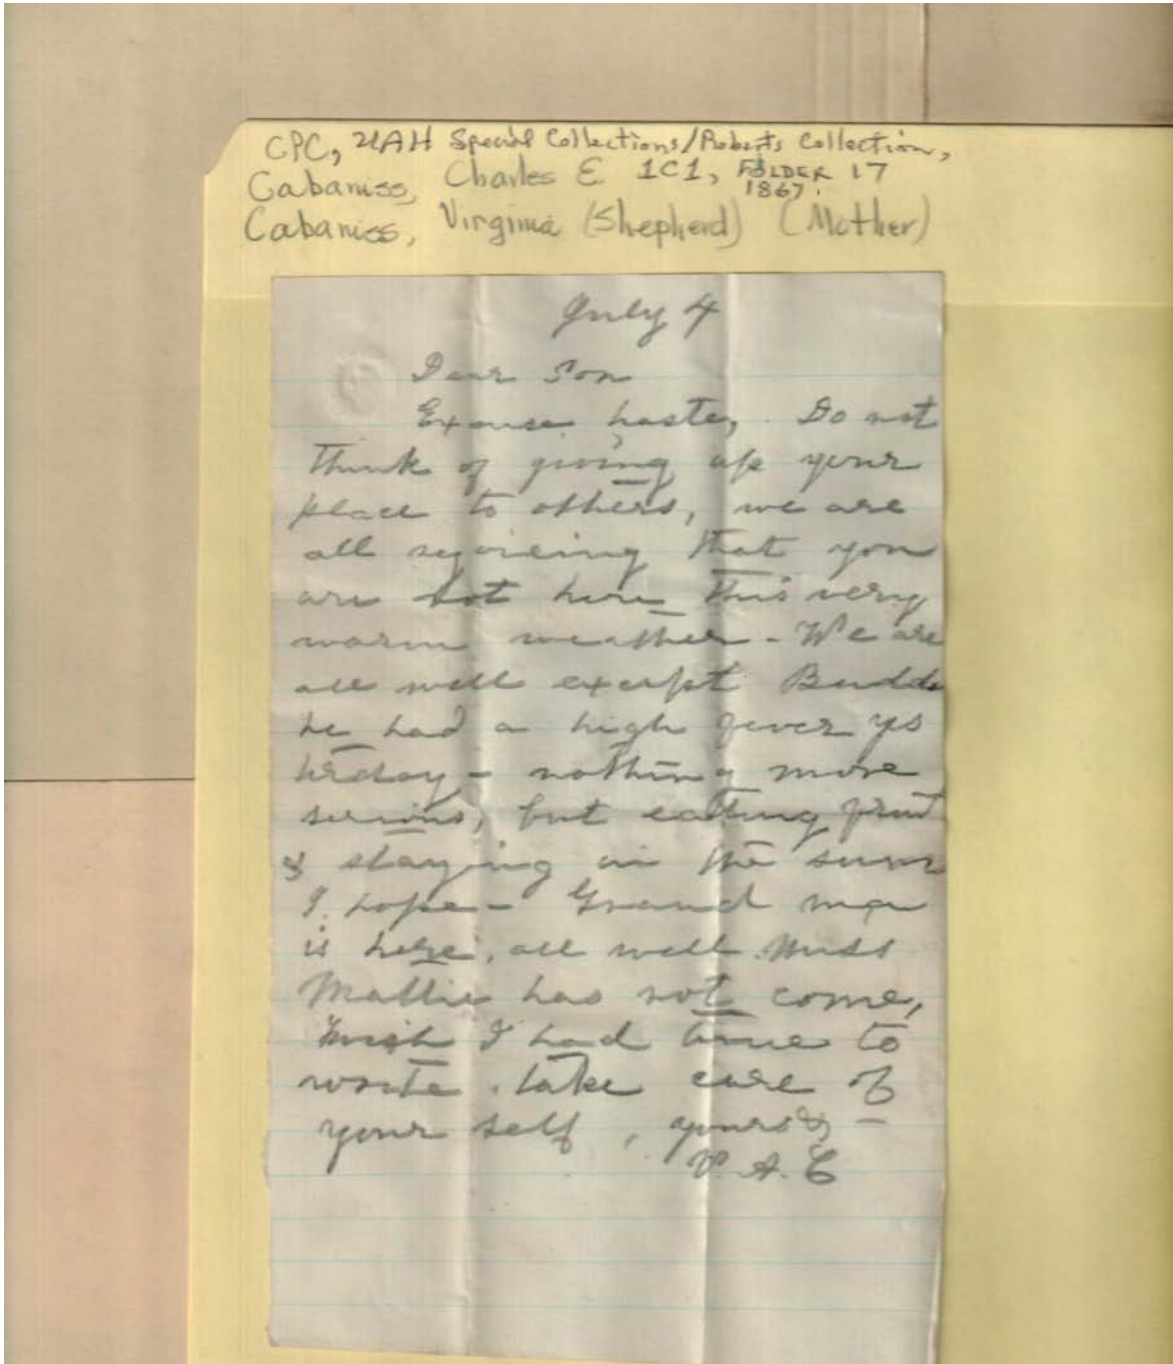 CPC, UAH Special Collections/Roberts Collection,
Cabaniss, Charles E 1C1, FOLDER 17
1867.
Cabaniss, Virginia (Shepherd) (Mother)
July 4
Dear Son
Excuse haste, Do not
think of giving up your
place to others, we are
all rejoicing that you
are not here this very
warm weather - We are
all well except
he had a high fever yes
terday - nothing more
serious, but eating fruit
& staying in the sun
I hope - Grand ma
is here, all well. Miss
Mattie has not come,
wish I had time to
write. take care of
your self, yours -
V. A. C